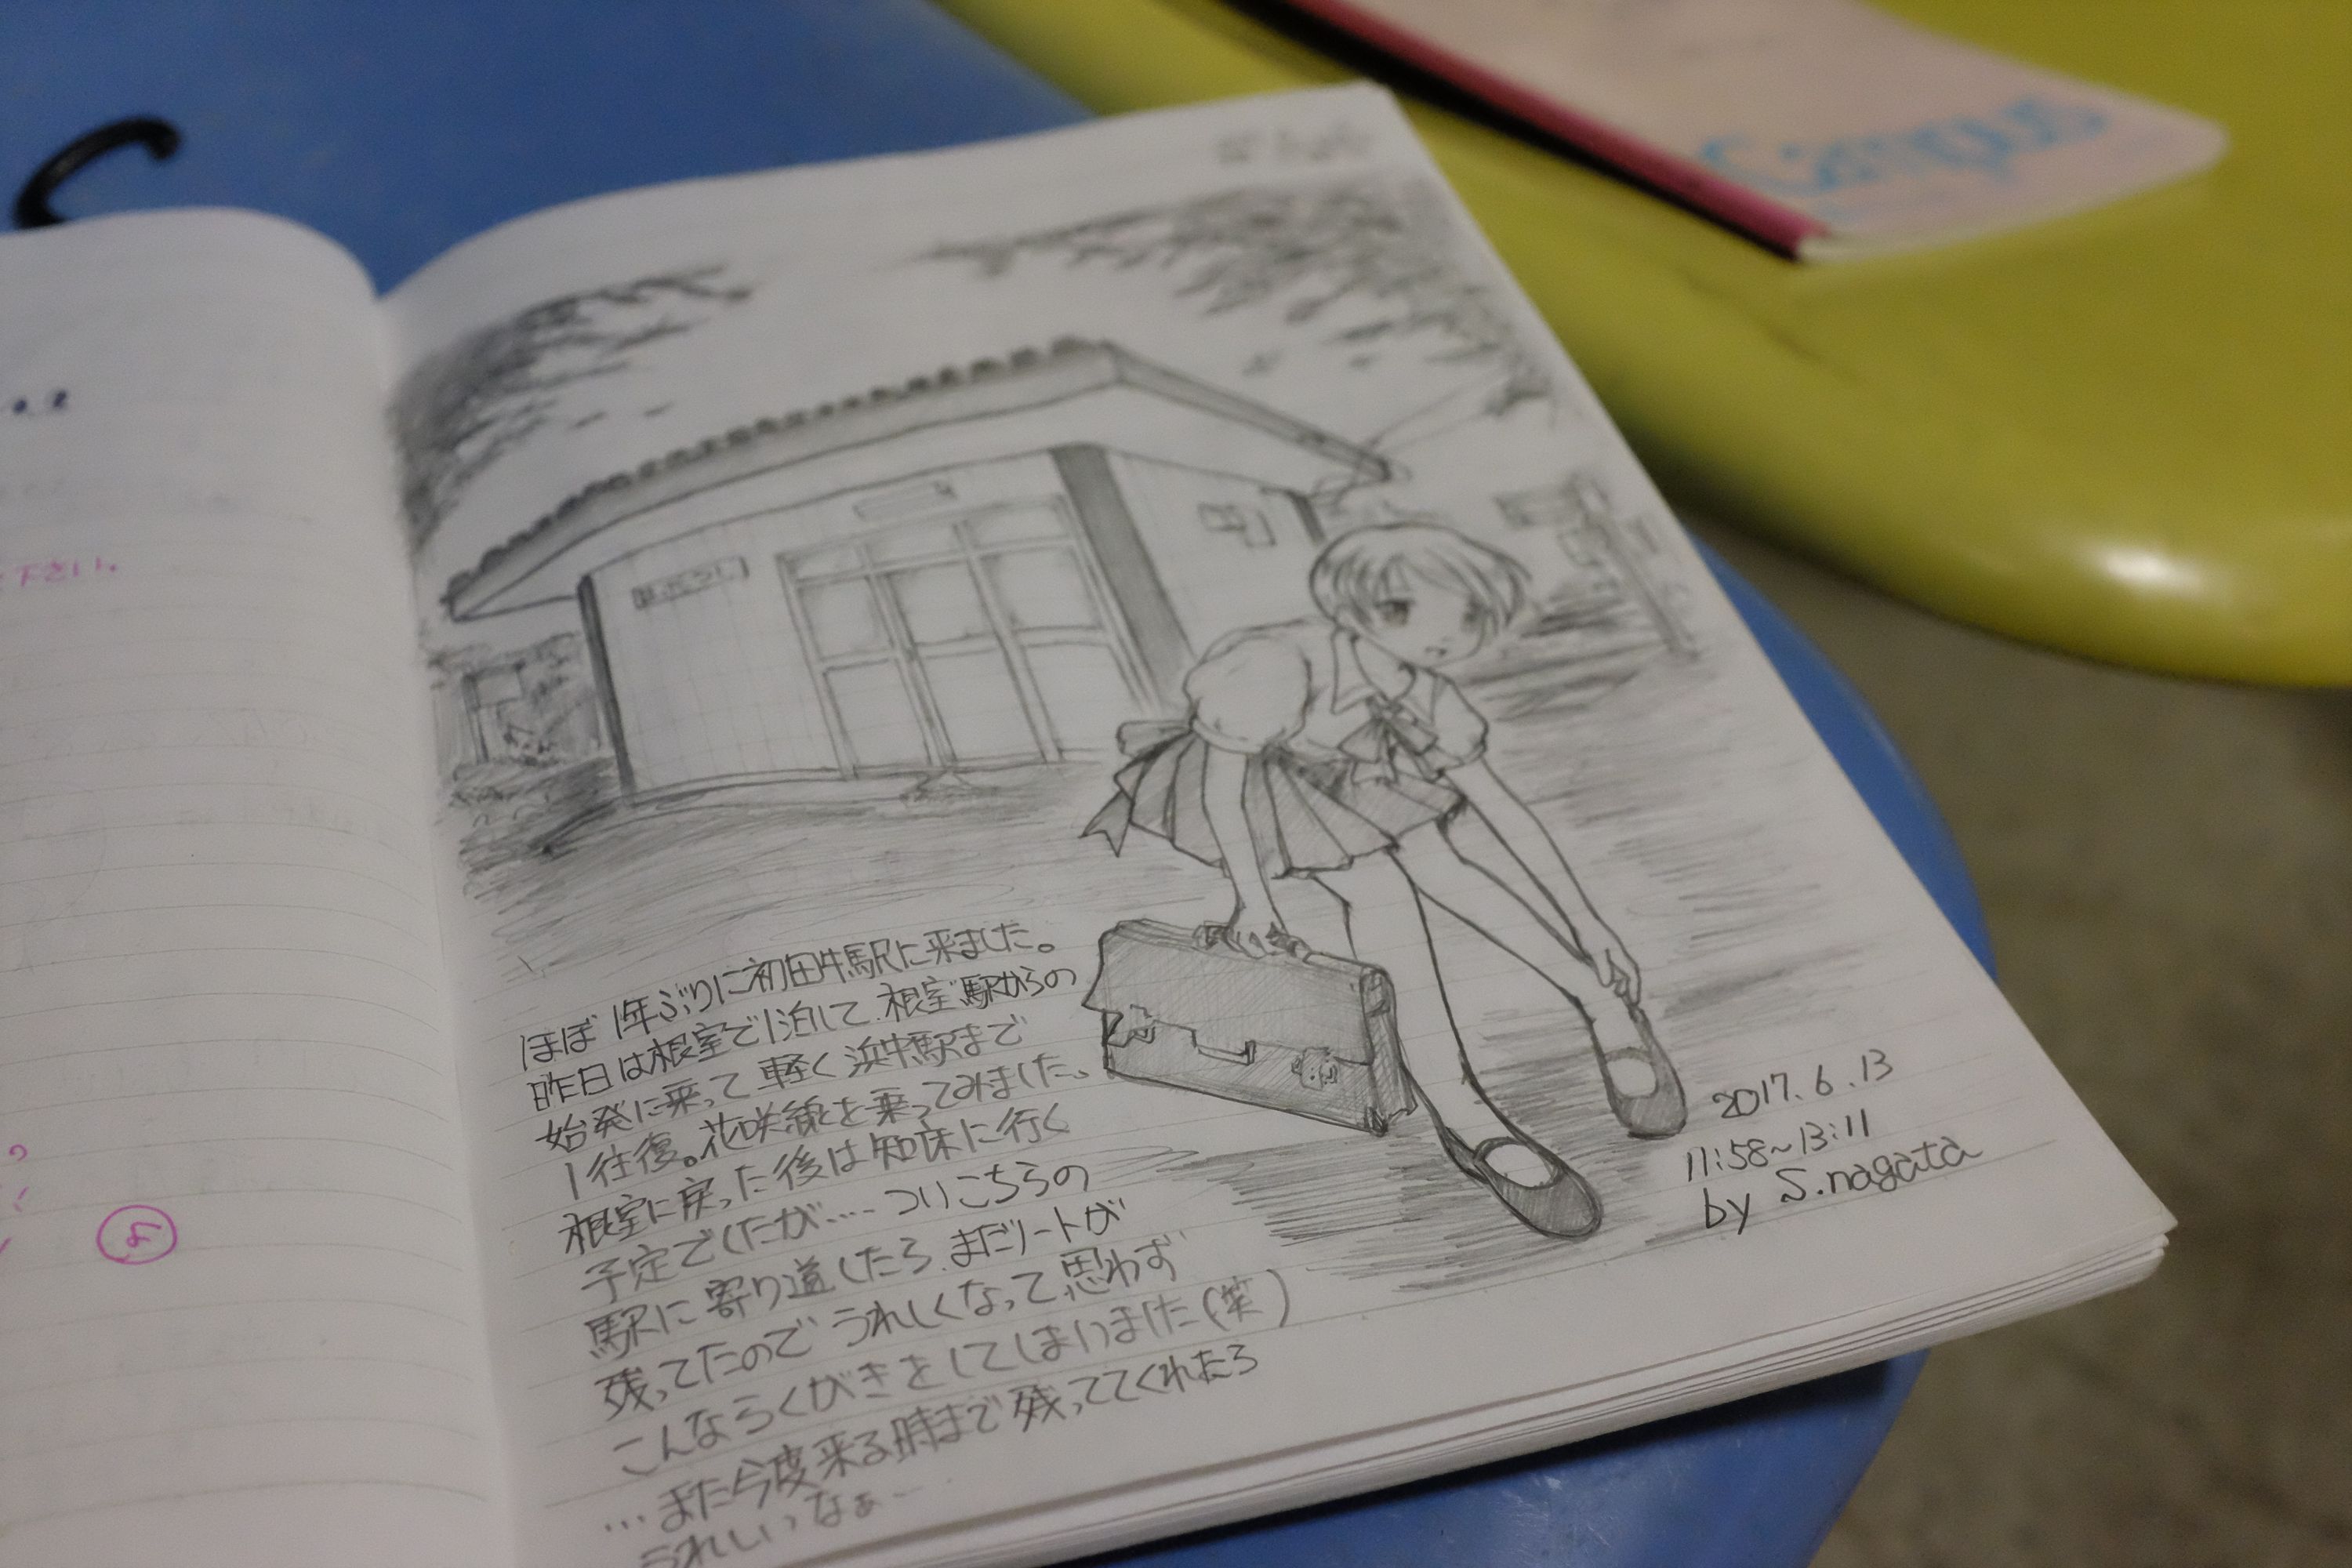 Campus
下さい。
はったうし
ほぼ1年ぶりに初田牛駅に来ました。
昨日は根室で1泊して、根室駅からの
始発に乗って軽く浜中駅まで
1往復。花咲線を乗ってみました。
根室に戻った後は知床に行く
予定でしたが…. ついこちらの
駅に寄り道したら、まだノートが
残ってたので うれしくなって、思わず
こんならくがきをしてしまいました(笑)
…また今度来る時まで残っててくれたら
うれしいなぁー
2017.6.13
11:58~13:11
by S.nagata